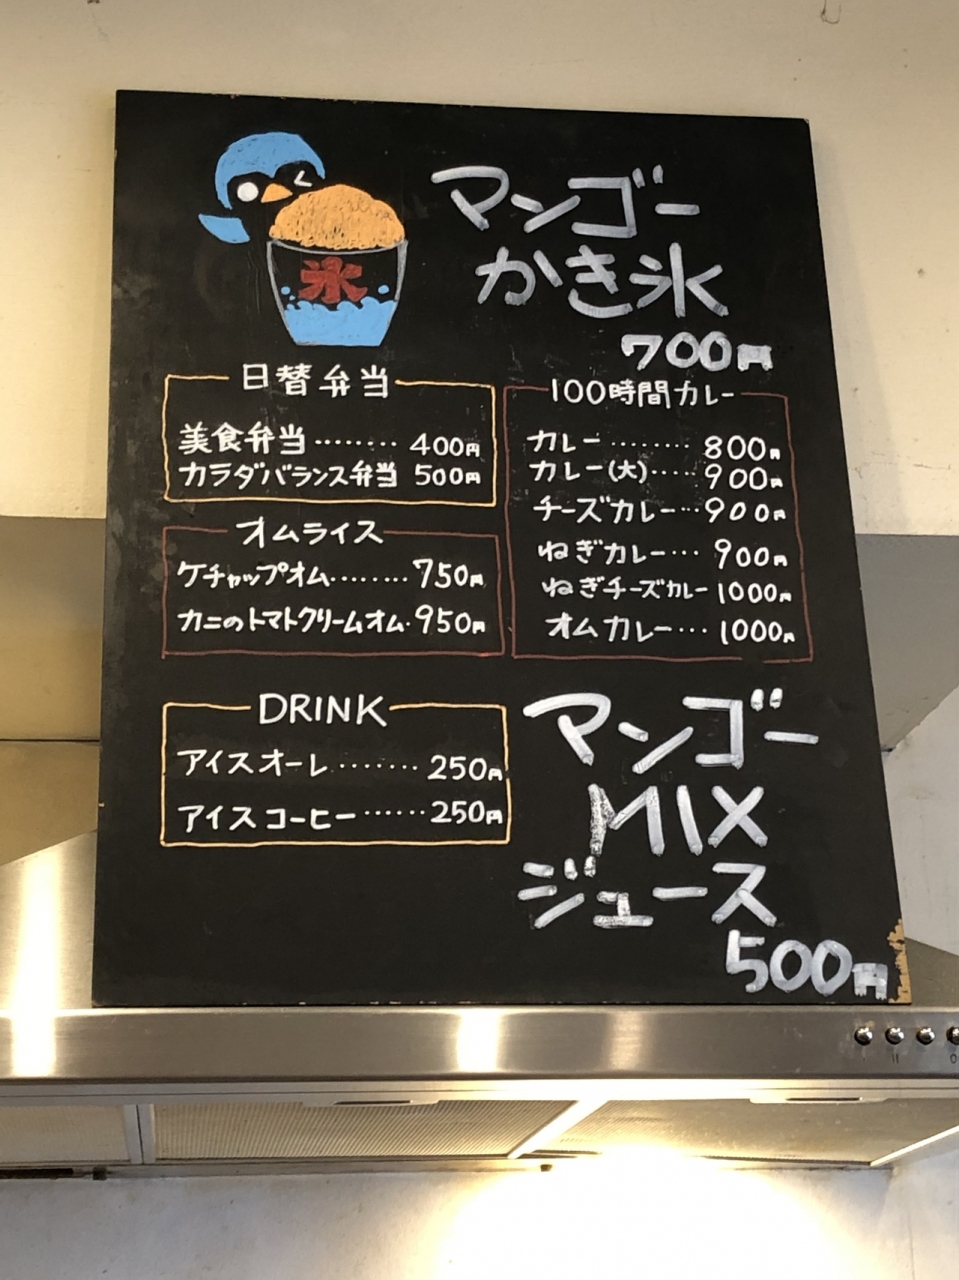 マンゴー
かき氷
700円
氷
日替弁当
美食弁当‥‥‥‥400円
カラダバランス弁当 500円
オムライス
ケチャップオム‥‥‥‥750円
カニのトマトクリームオム・950円
100時間カレー
カレー‥‥‥‥800円
カレー(大)‥‥・900円
チーズカレー…900円
ねぎカレー…900円
ねぎチーズカレー1000円
オムカレー…1000円
DRINK
アイスオーレ‥‥‥・250円
アイスコーヒー‥‥‥250円
マンゴー
MIX
ジュース
500円